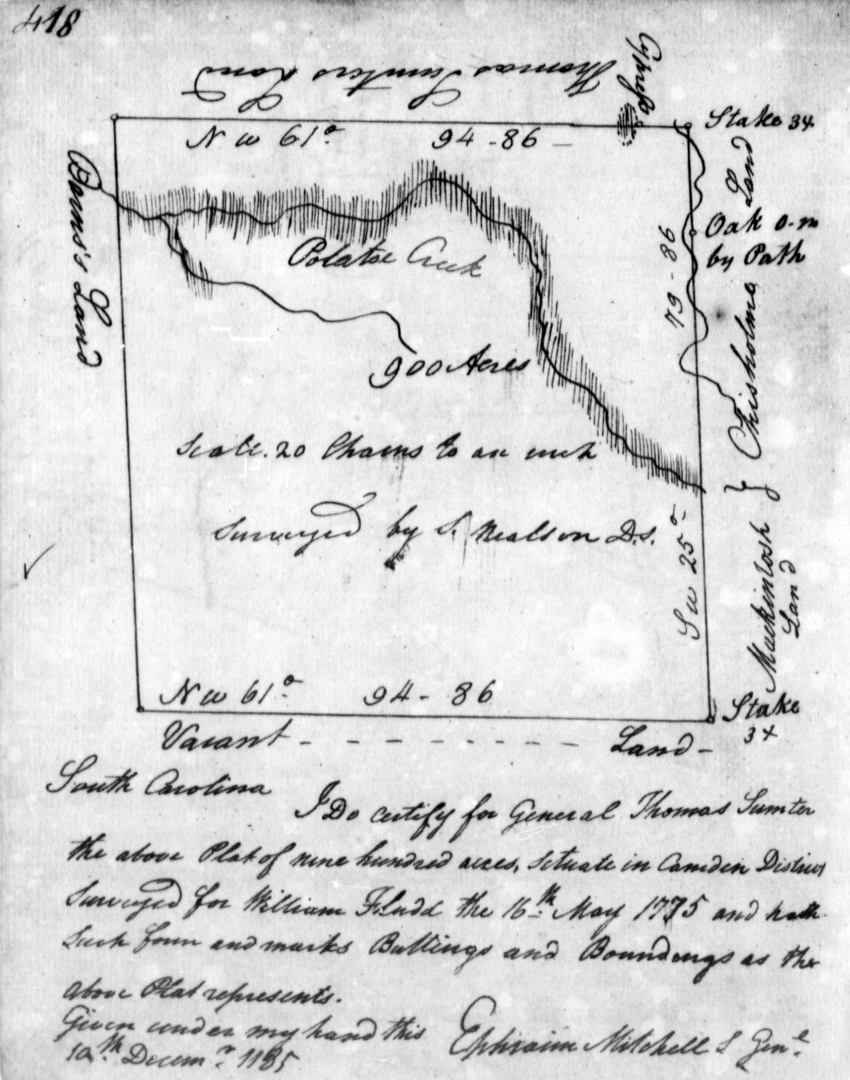 418
Thomas Sumters Land
Cypress
Stake 3x
N W 61° 94 - 86
Land
Oak o-m
by Path
79 - 86
Potatoe Creek
900 Acres
Chisholms
Scale. 20 Chains to an inch
Surveyed by S. Nealson D.S.
SW 25°
Mackintosh
Land
N W 61° 94 - 86
Stake
3x
Vacant - - - - - - - - Land -
South Carolina
I Do certify for General Thomas Sumter
the above Plat of nine hundred acres, Situate in Camden District
Surveyed for William Fludd the 16th May 1775 and hath
Such form and marks Buttings and Boundings as the
above Plat represents.
Given under my hand this
Decemr. 1785
Ephraim Mitchell S Genl.